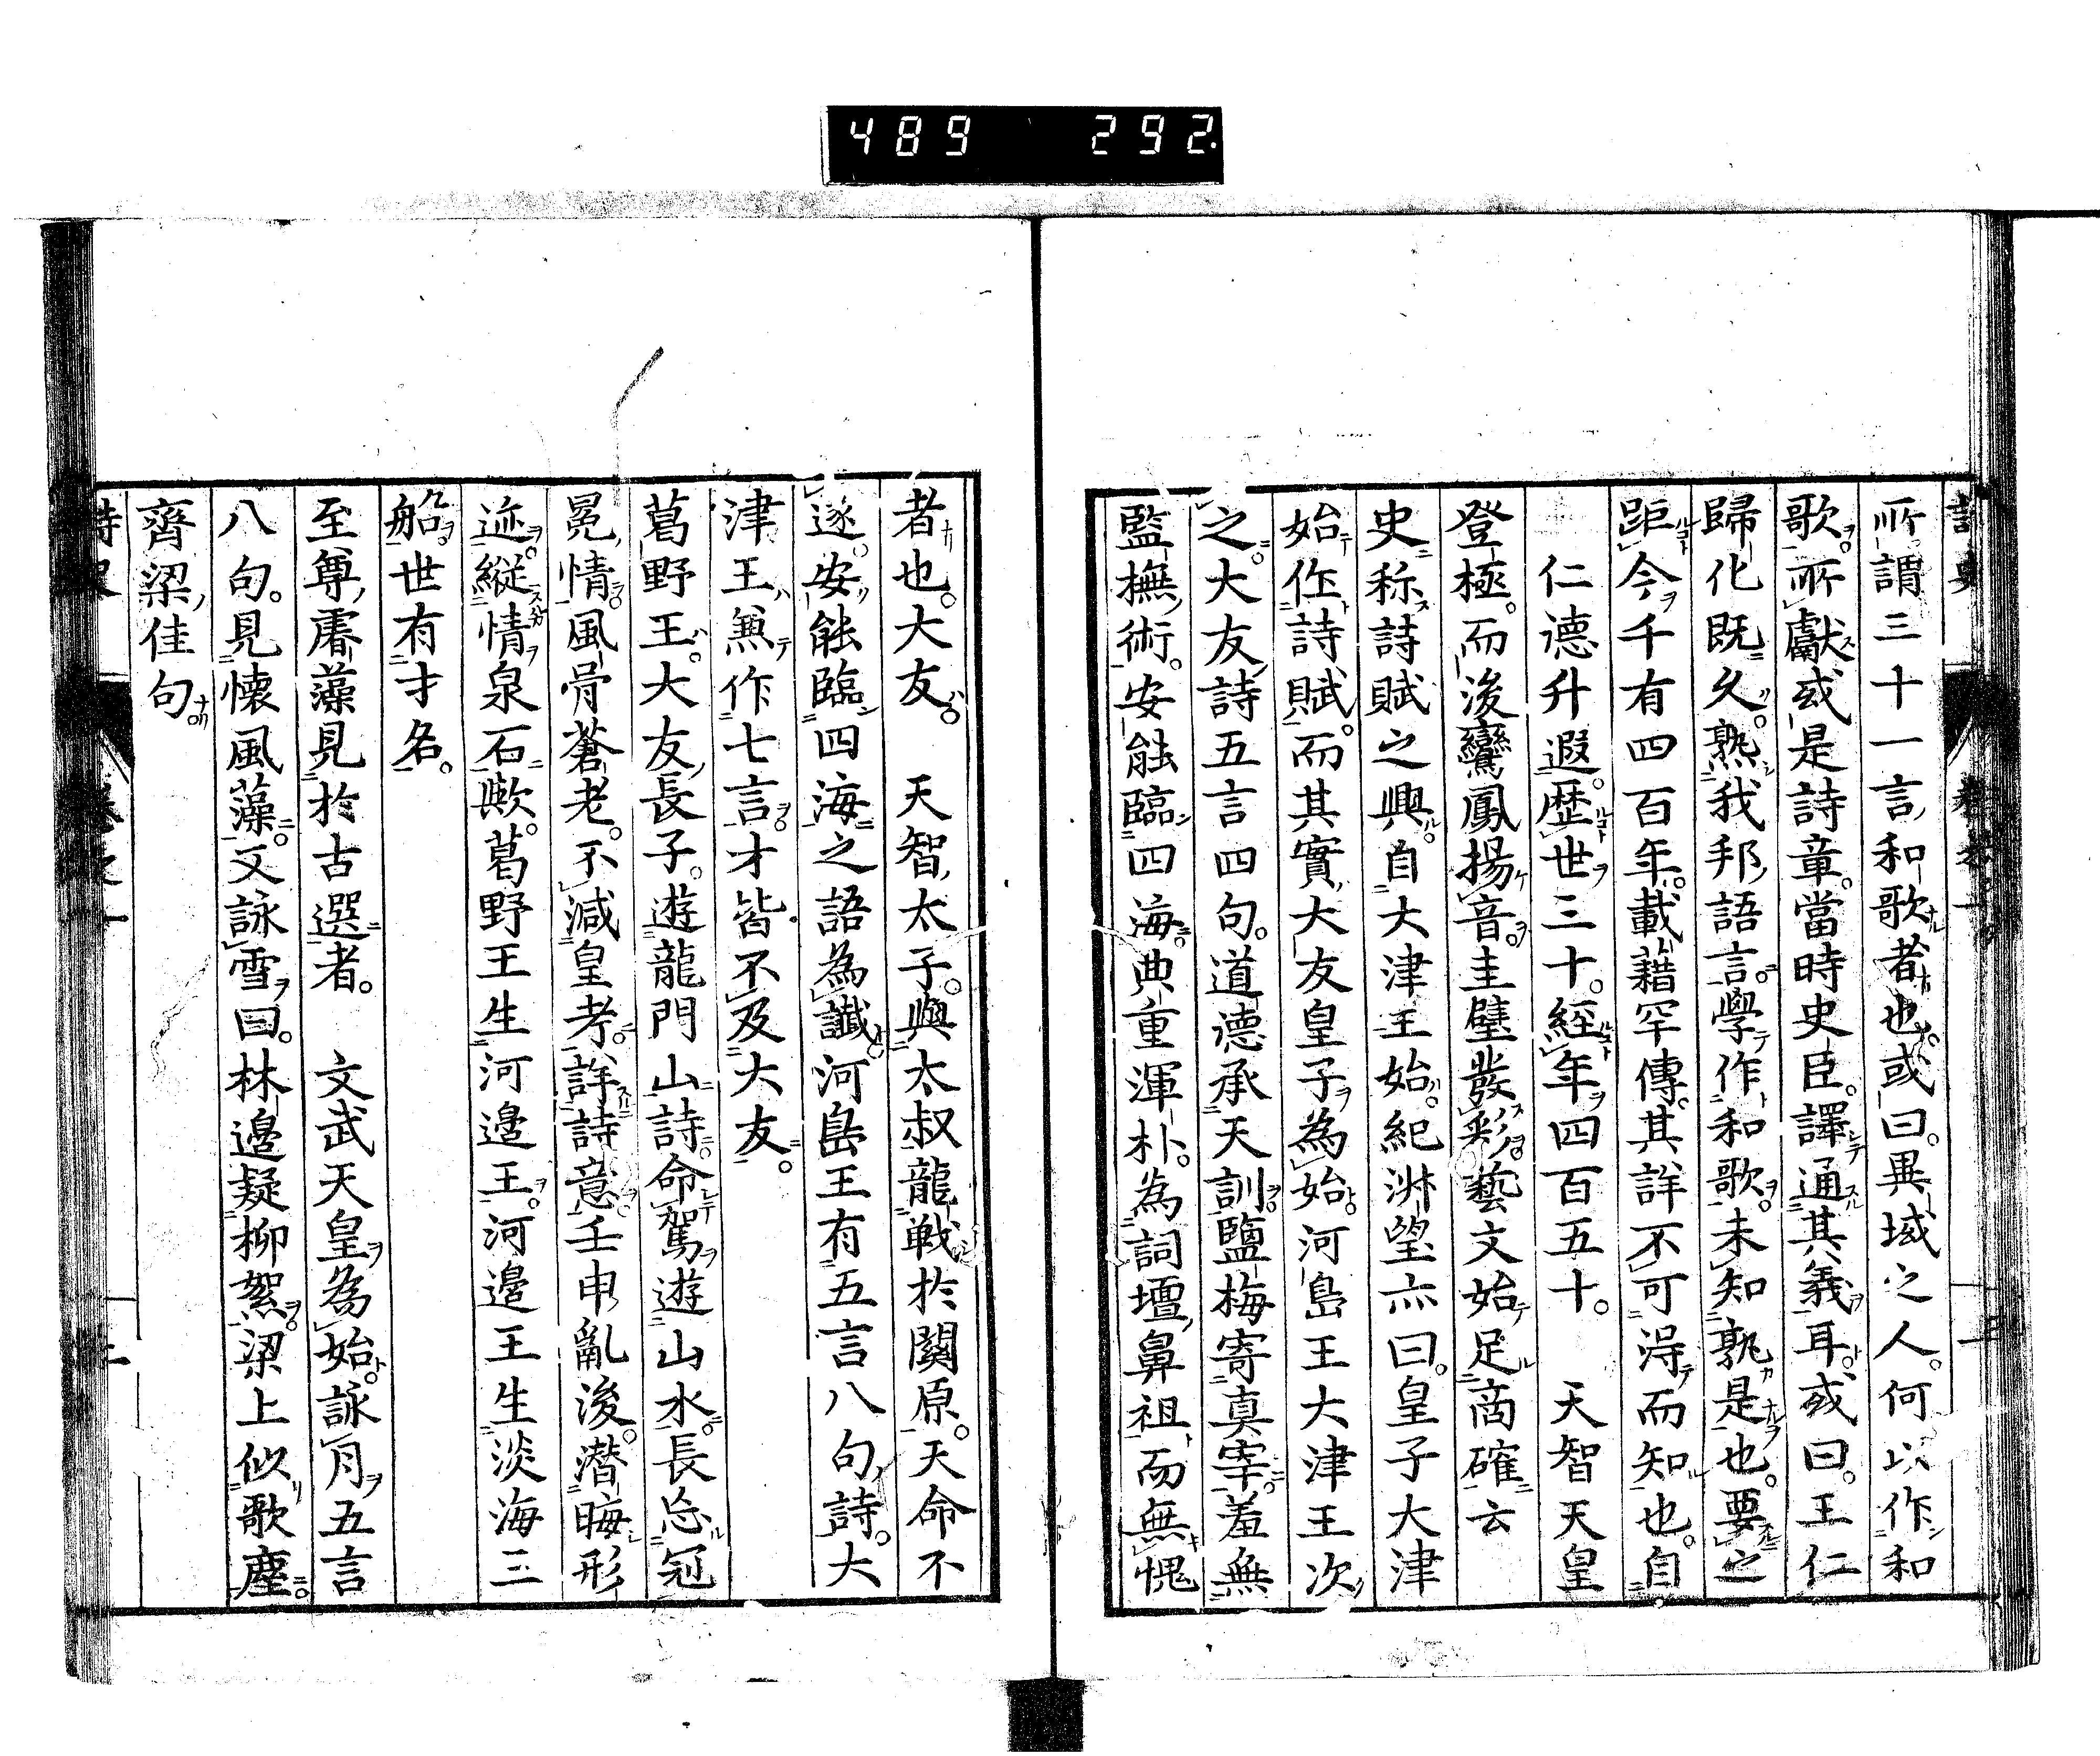 489 292.
所謂三十一言和歌者也或曰異域之人何以作和
歌所獻或是詩章當時史臣譯通其義耳或曰王仁
歸化既久熟我邦語言學作和歌未知孰是也要之
距今千有四百年載籍罕傳其詳不可得而知也自
仁德升遐歷世三十經年四百五十 天智天皇
登極而後鸞鳳揚音圭璧發彩藝文始足商確云
史称詩賦之興自大津王始紀淑望亦曰皇子大津
始作詩賦而其實大友皇子為始河島王大津王次
之大友詩五言四句道德承天訓鹽梅寄真宰羞無
監撫術安能臨四海典重渾朴為詞壇鼻祖而無愧
者也大友 天智太子與太叔龍戦於關原天命不
遂安能臨四海之語為讖河島王有五言八句詩大
津王兼作七言才皆不及大友
葛野王大友長子遊龍門山詩命駕遊山水長忘冠
冕情風骨蒼老不減皇考詳詩意壬申亂後潛晦形
迹縱情泉石歟葛野王生河邊王河邊王生淡海三
船世有才名
至尊睿藻見於古選者 文武天皇為始詠月五言
八句見懷風藻又詠雪曰林邊疑柳絮梁上似歌塵
齊梁佳句